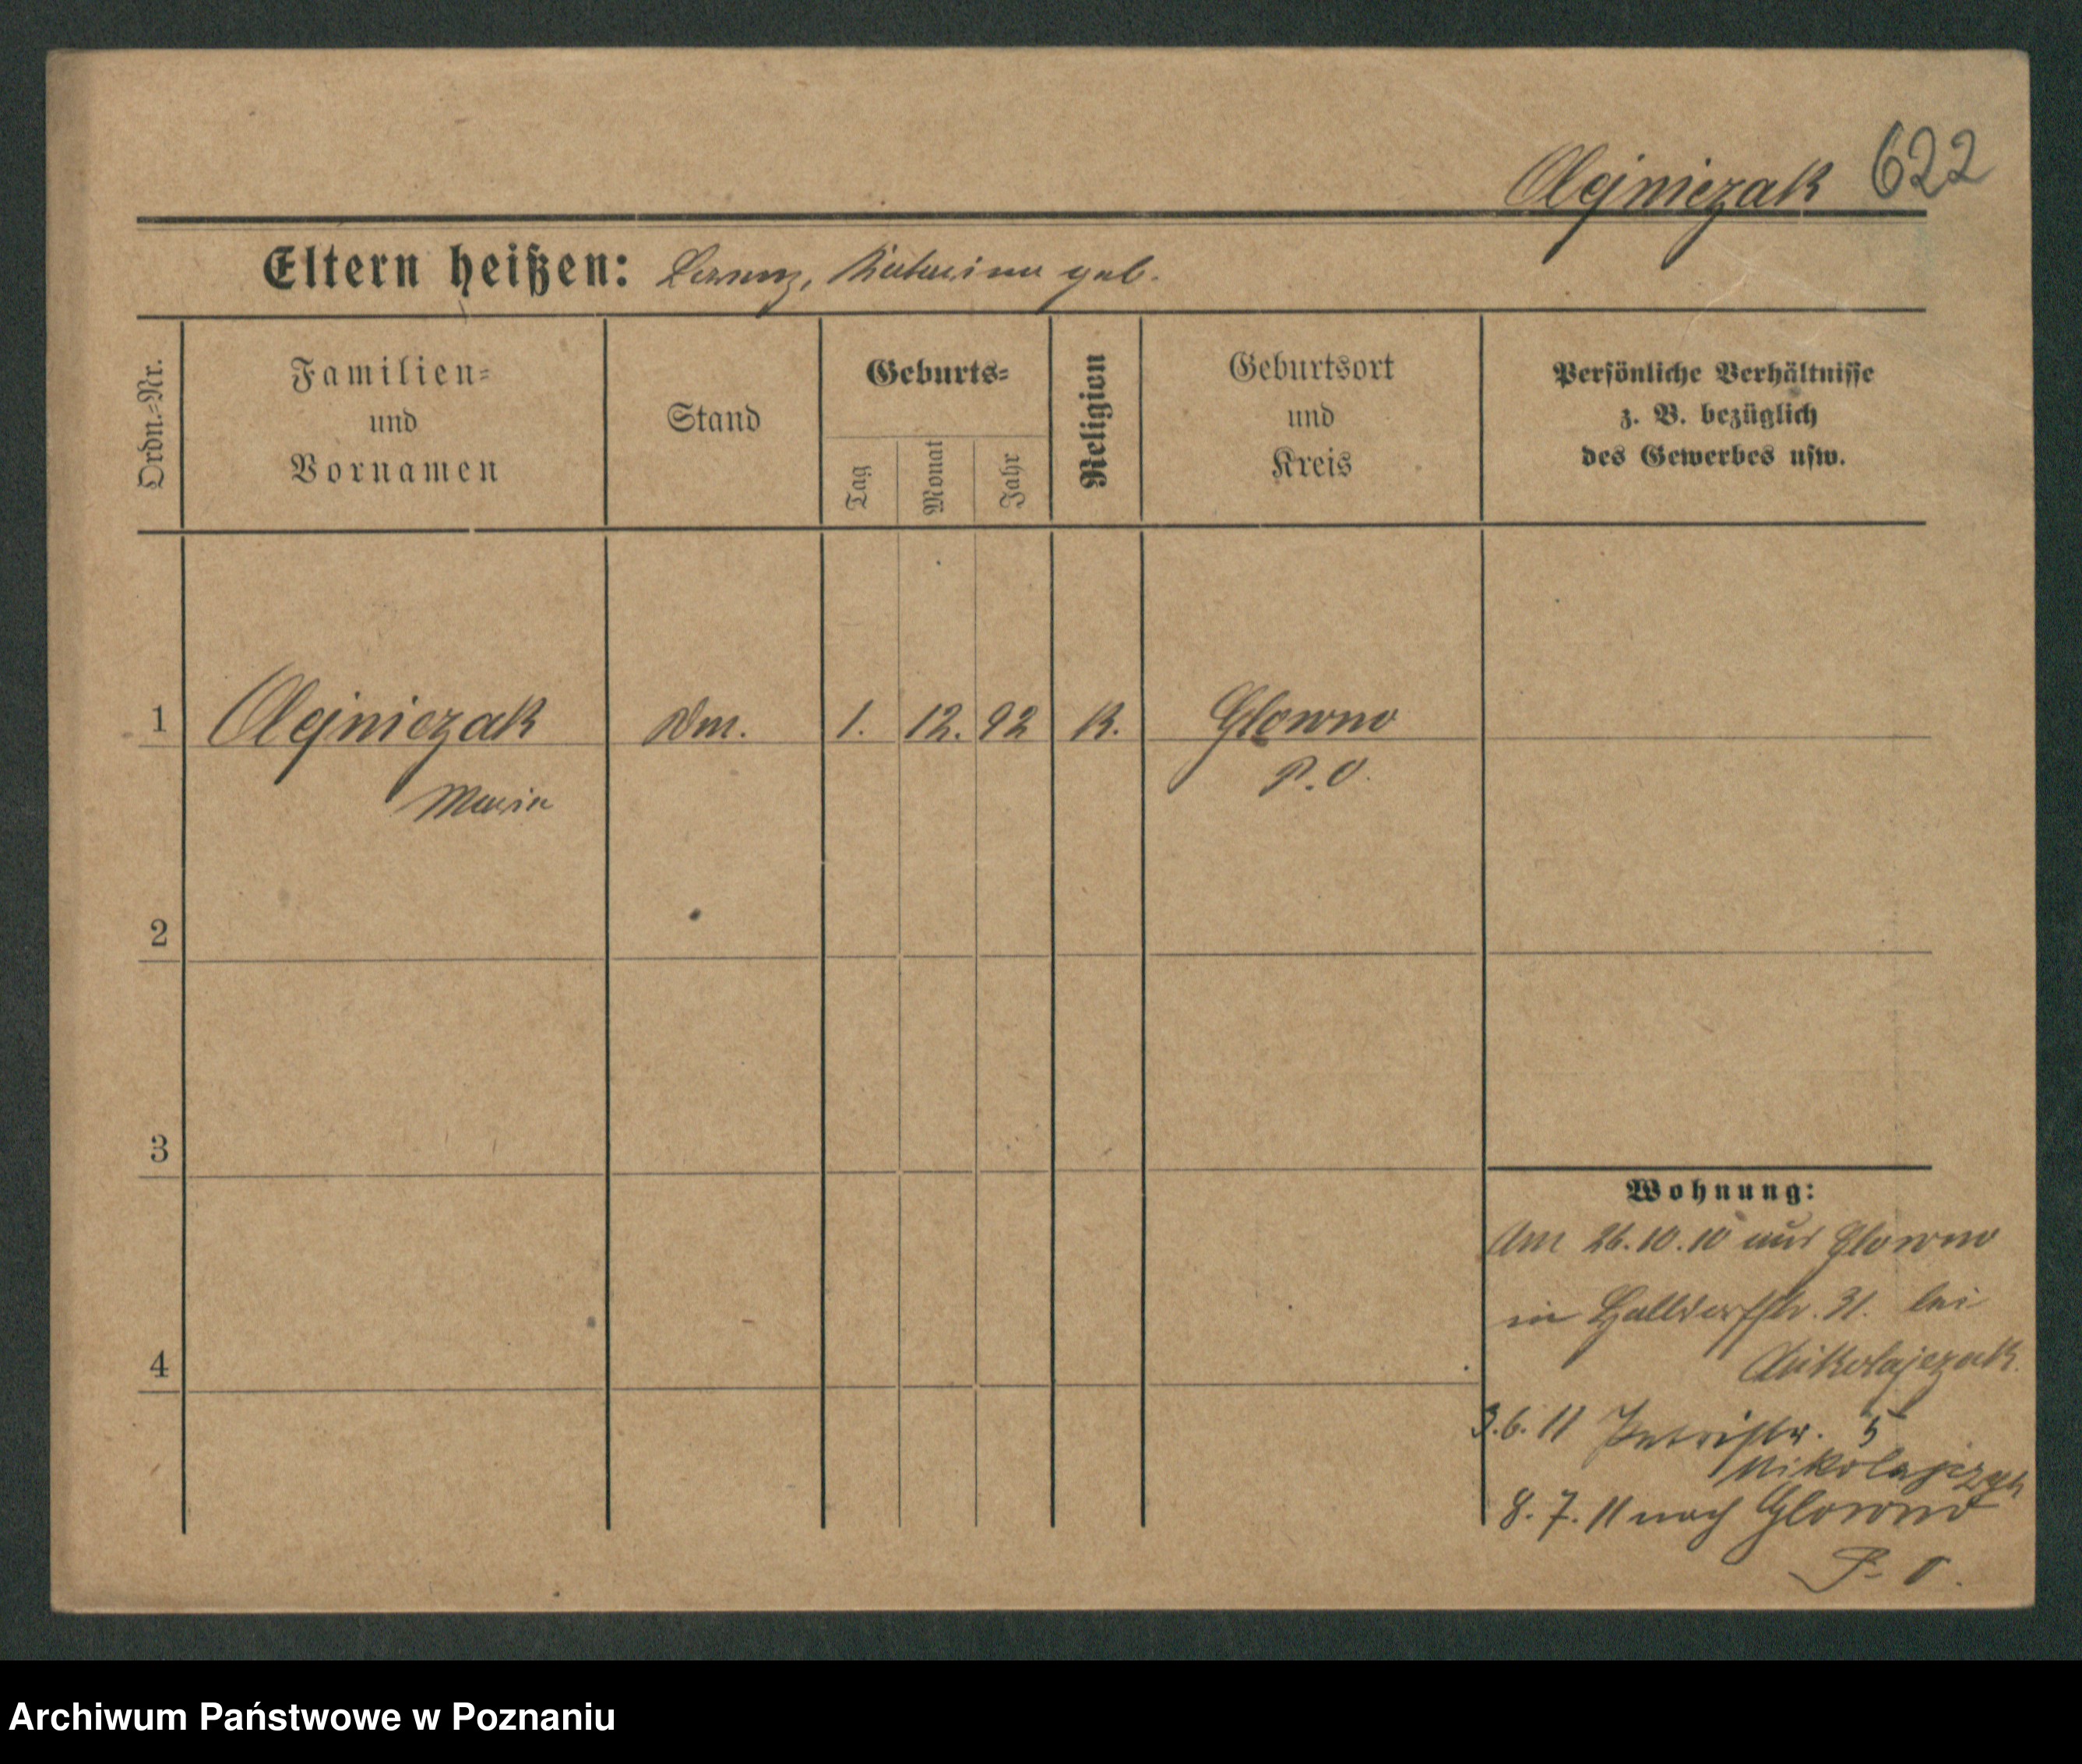 Olejniczak 622
Eltern heißen: Lorenz, Katarina geb.
Ordn.-Nr.
Familien-
und
Vornamen
Stand
Geburts-
Tag
Monat
Jahr
Religion
Geburtsort
und
Kreis
Persönliche Verhältnisse
z. B. bezüglich
des Gewerbes usw.
1 Olejniczak 1. 12. 92 K. Glowno
Maria P. O.
2
3
4
Wohnung:
Am 26.10.10 aus Glowno
in Halldorfstr. 31. bei
Mikolajczak.
3.6.11 Petristr. 5
Mikolajczak
8.7.11 nach Glowno
P. O.
Archiwum Państwowe w Poznaniu